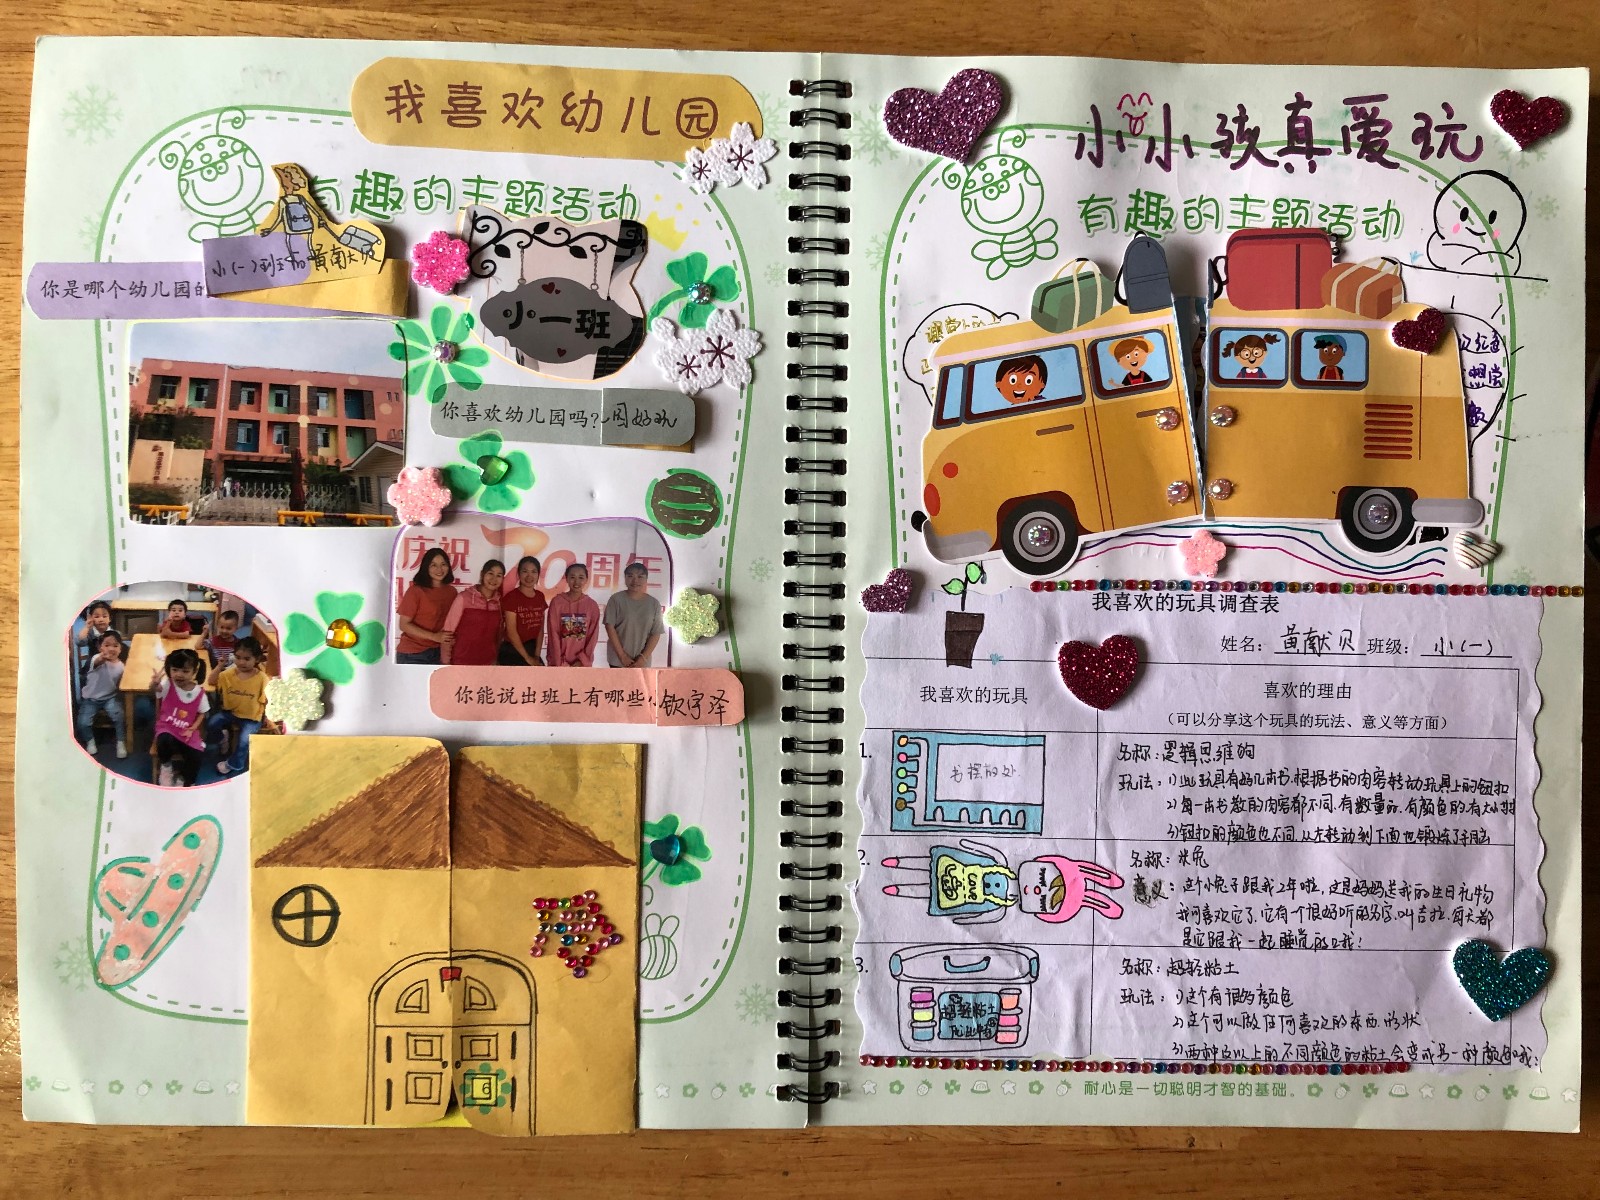 我喜欢幼儿园
有趣的主题活动
小(一)班的黄献贝
你是哪个幼儿园的
小一班
你喜欢幼儿园吗?
好玩
庆祝70周年
你能说出班上有哪些
钦宇泽
6
小小孩真爱玩
有趣的主题活动
我喜欢的玩具调查表
姓名: 黄献贝 班级: 小(一)
我喜欢的玩具
喜欢的理由
(可以分享这个玩具的玩法、意义等方面)
1.
书摆放处
名称:逻辑思维狗
玩法:1)此玩具有好几本书.根据书的内容转动玩具上的钮扣
2)每一本书教的内容都不同.有数量的.有颜色的.有大小
3)钮扣的颜色也不同.从左转动到下面也锻炼了手脑
2.
LOVE
名称:米兔
意义:这个小兔子跟我2年啦,这是妈妈送我的生日礼物
我可喜欢它了,它有一个很好听的名字,叫吉拉,每天都
是它跟我一起睡觉的哦!
3.
超轻粘土
名称:超轻粘土
玩法:1)这个有很多颜色
2)这个可以做任何喜欢的东西.形状
3)两种或以上的不同颜色的粘土会变成另一种颜色哦!
耐心是一切聪明才智的基础。